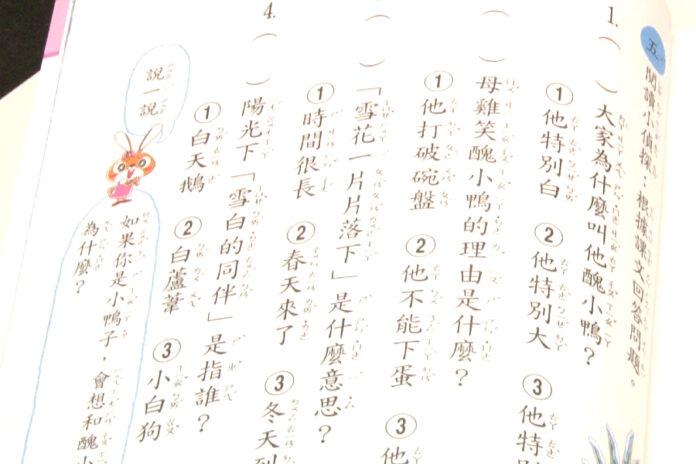 五、閱讀小偵探，根據課文回答問題。
1.（ ）大家為什麼叫他醜小鴨？
①他特別白 ②他特別大 ③他特
（ ）母雞笑醜小鴨的理由是什麼？
①他打破碗盤 ②他不能下蛋 ③他
（ ）「雪花一片片落下」是什麼意思？
①時間很長 ②春天來了 ③冬天到
4.（ ）陽光下「雪白的同伴」是指誰？
①白天鵝 ②白蘆葦 ③小白狗
說一說
如果你是小鴨子，會想和醜小
為什麼？